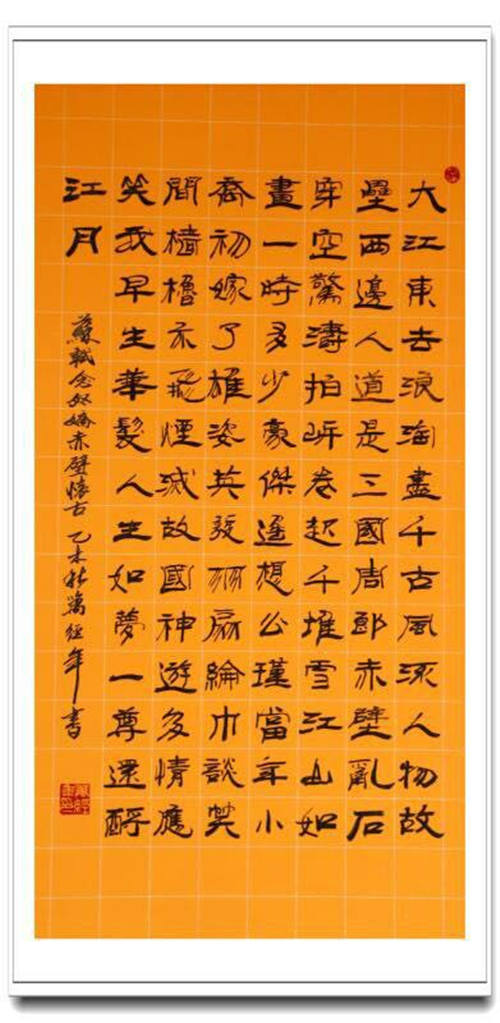 大江東去浪淘盡千古風流人物故
壘西邊人道是三國周郎赤壁亂石
穿空驚濤拍岸卷起千堆雪江山如
畫一時多少豪傑遥想公瑾當年小
喬初嫁了雄姿英發羽扇綸巾談笑
間檣櫓灰飛煙滅故國神遊多情應
笑我早生華髮人生如夢一尊還酹
江月
蘇軾念奴嬌赤壁懷古 乙未秋萬經年書